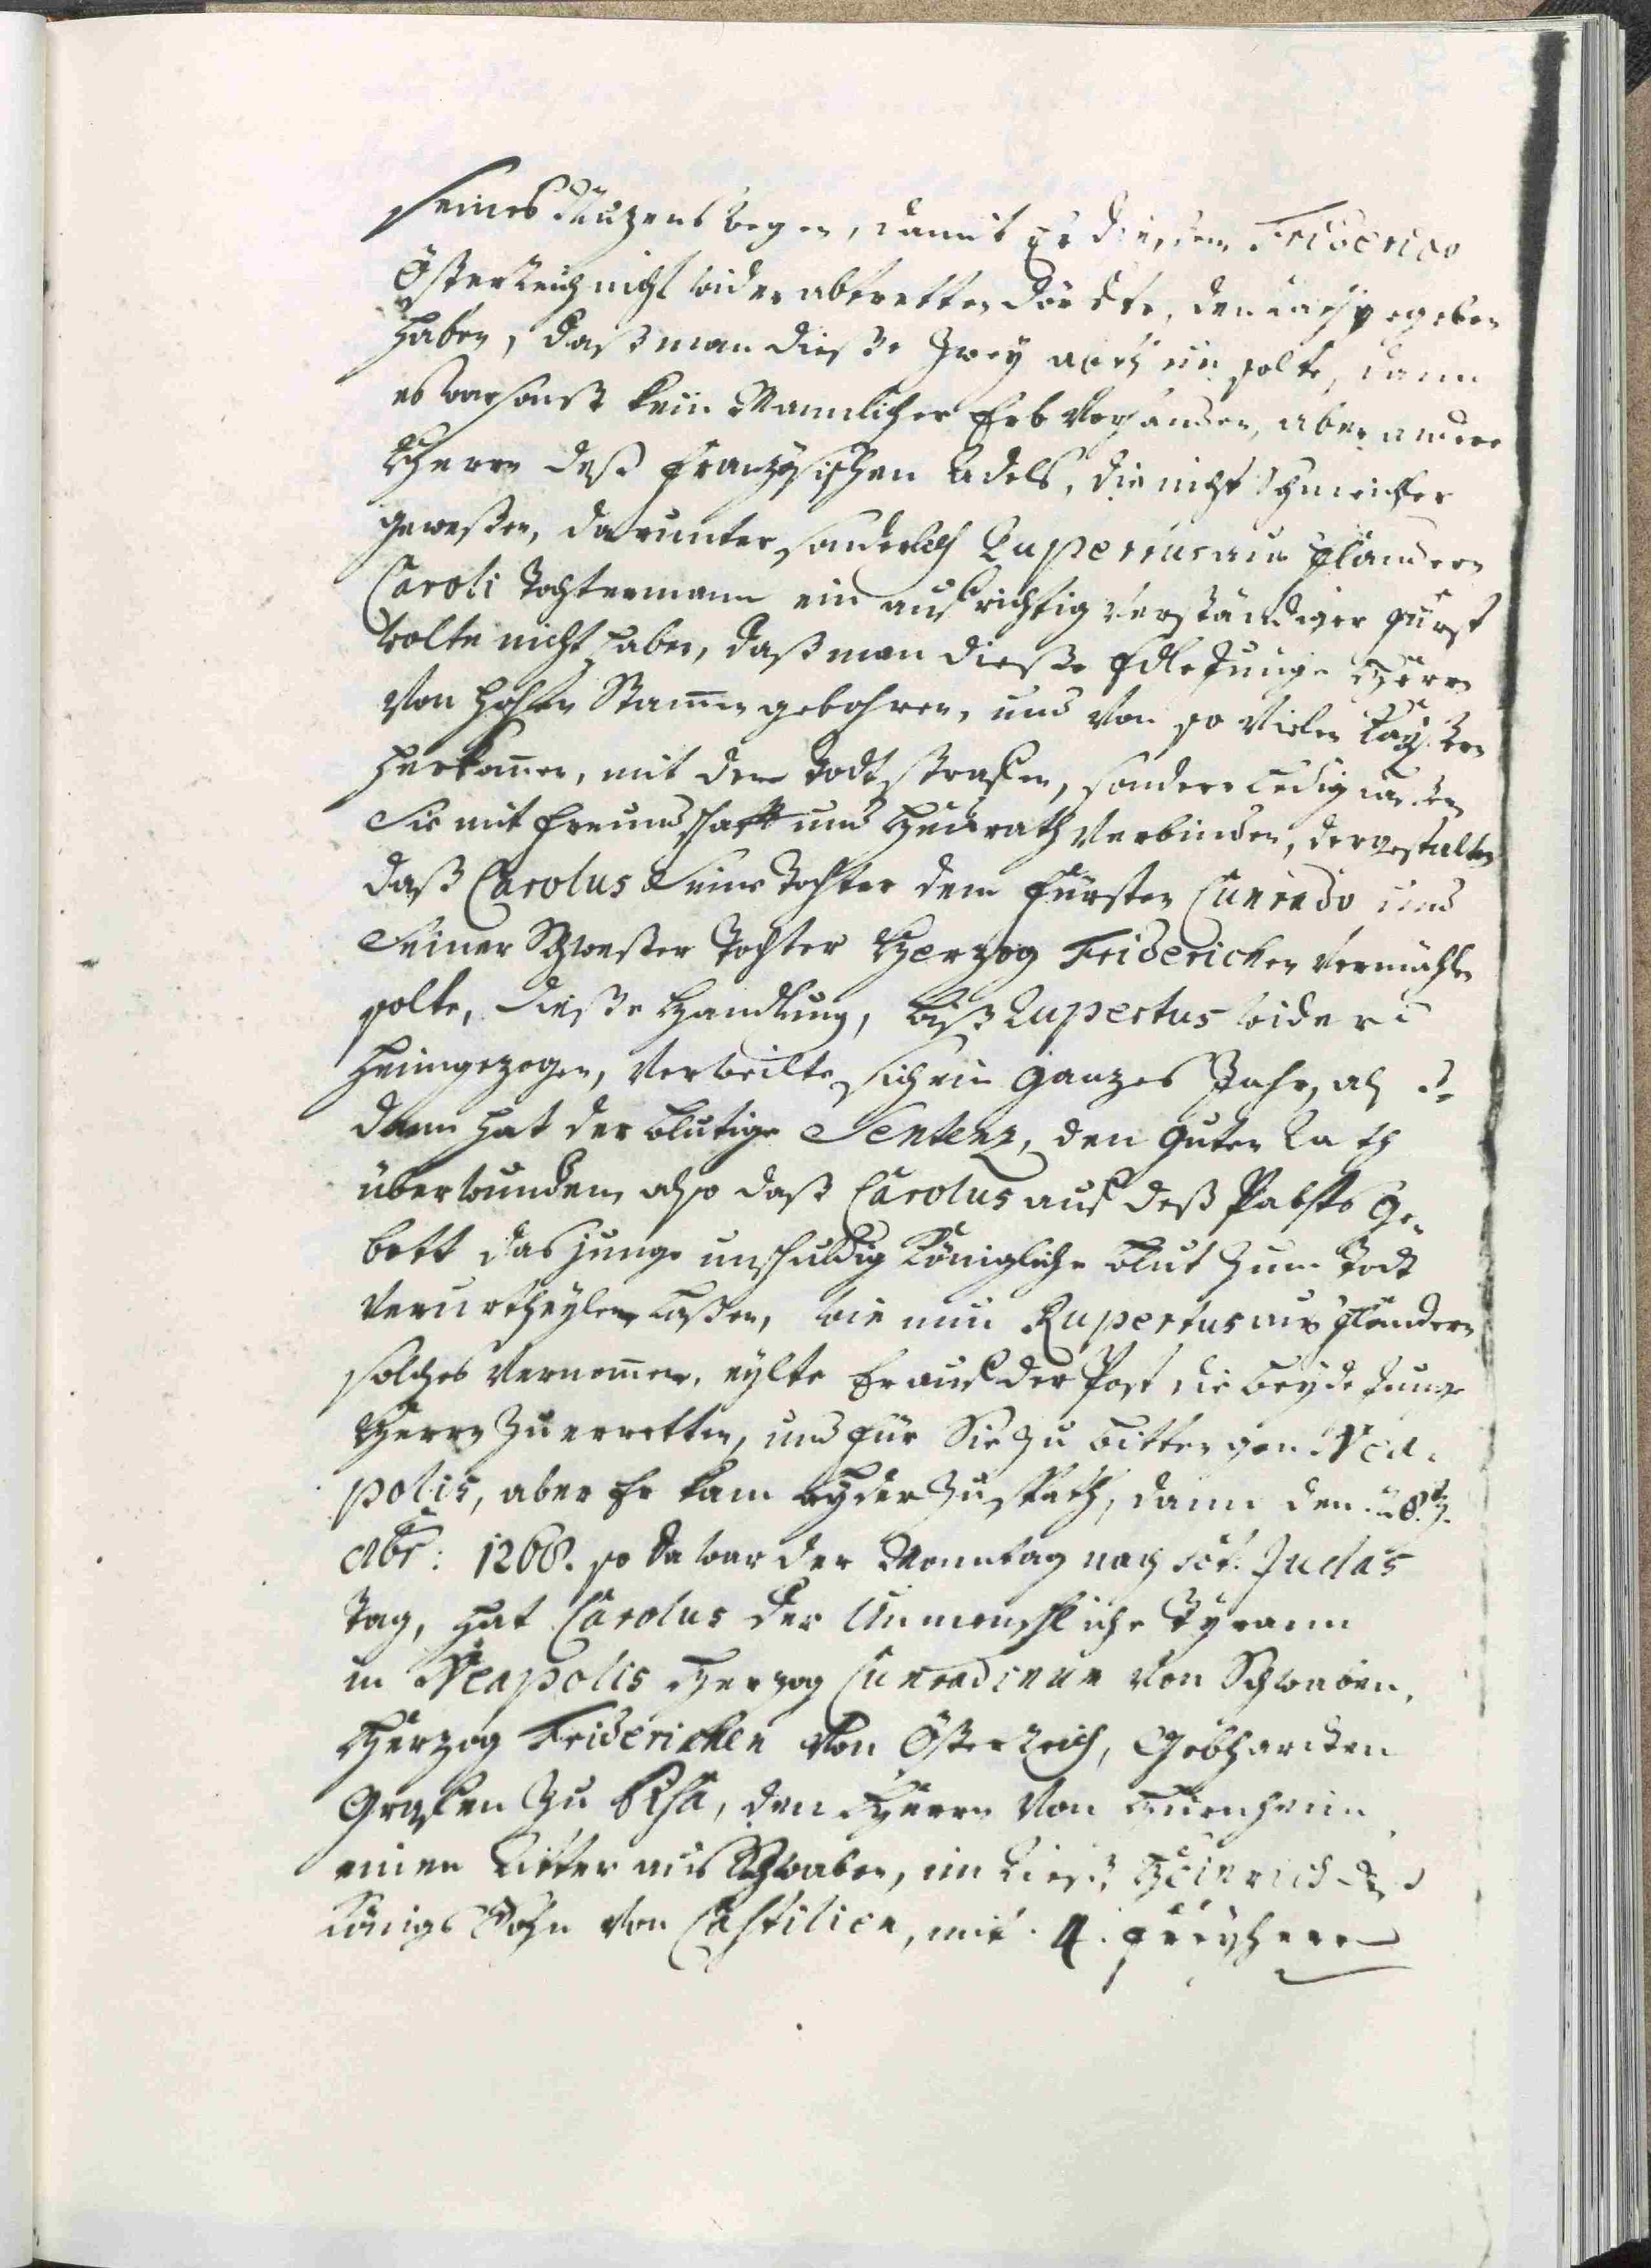 seines Nuzens wegen, damit Er diesem Friderico
Österreich nicht wider abtretten dörffte, den rath gegeben
haben, daß man dieße Zwey solte, dann
es war sonst kein Mannlicher Erb Vorhanden, aber andere
Herrn deß französischen Adels, die nicht Schmeichler
geweßen, darunter sonderlich Rupertus aus Flandern
Caroli Tochtermann ein aufrichtig verständiger Fürst
wolte nicht haben, daß man dieße Edle Junge Herrn
Von hohen Stammen gebohren, und Von so Vielen Kayßern
herkommen, mit dem Todt straffen, sondern ledig laßen
Sie mit freundschafft und Heurath Verbinden, dergestalten
daß Carolus Seine Tochter dem Fürsten Cunrado und
Seiner Schwester Tochter Herzog Friderichen Vermählen
solte, dieße Handlung, biß Rupertus wider
heimgezogen, Verweilte sich ein Ganzes Jahr, alß
dann hat der blutige Sentenz, den Guten Rath
überwunden, also daß Carolus auf deß Pabsts Ge-
bott das junge unschuldig Königliche blut zum Todt
Verurtheylen laßen, wie nun Rupertus aus Flandern
solches Vernommen, eylte Er auf der Post die beyde Junge
Herrn zu erretten, und für Sie zu bitten gen Nea-
polis, aber Er kam leyder zu spath, dann den 28.
8br: 1268. so da war der Monntag nach Sct. Judas
Tag, hat Carolus der Unmenschliche Tyrann
in Neapolis Herzog Cunradinum Von Schwaben,
Herzog Friderichen Von Österreich, Gebharden
Grafen zu Pisa, den Herrn Von Hürnheim
einen Ritter aus Schwaben, Heinrich deß
Königs Sohn Von Castilien, mit 4. freyherrn